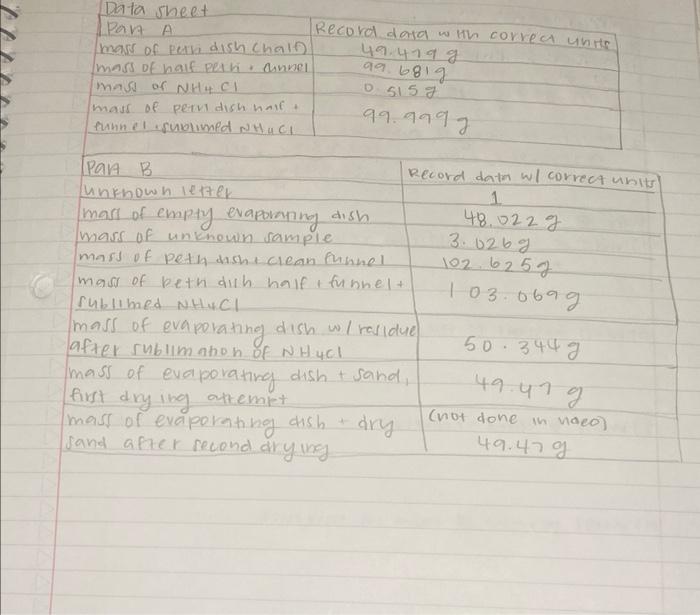 Data sheet
Part A Record data with correct units
mass of petri dish (half) 49.479 g
mass of half petri + funnel 99.681g
mass of NH4Cl 0.515g
mass of petri dish half + 99.999g
funnel + sublimed NH4Cl
Part B Record data w/ correct units
unknown letter 1
mass of empty evaporating dish 48.022g
mass of unknown sample 3.026g
mass of petri dish + clean funnel 102.625g
mass of petri dish half + funnel + 103.069g
sublimed NH4Cl
mass of evaporating dish w/ residue
after sublimation of NH4Cl 50.344g
mass of evaporating dish + sand, 49.47g
first drying attempt
mass of evaporating dish + dry (not done in video)
sand after second drying 49.47g